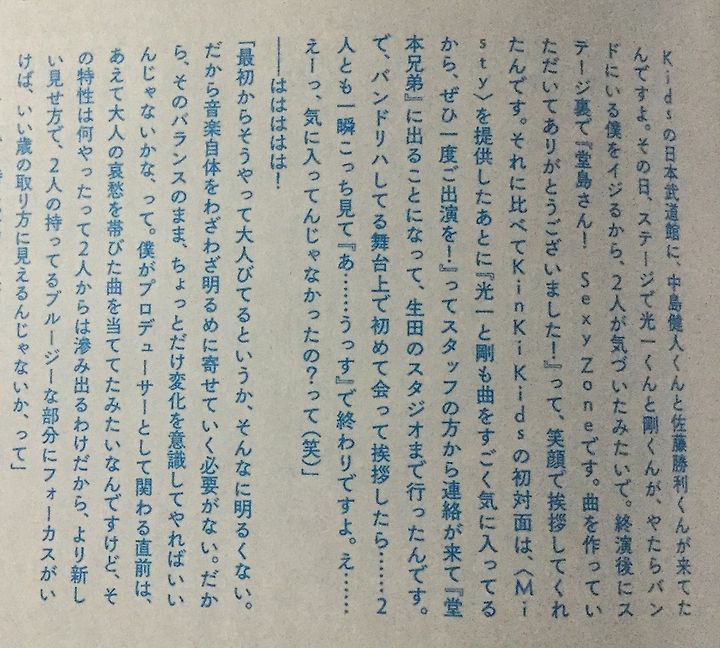 Kidsの日本武道館に、中島健人くんと佐藤勝利くんが来てた
んですよ。その日、ステージで光一くんと剛くんが、やたらバン
ドにいる僕をイジるから、2人が気づいたみたいで。終演後にス
テージ裏で『堂島さん! Sexy Zoneです。曲を作ってい
ただいてありがとうございました!』って、笑顔で挨拶してくれ
たんです。それに比べてKinKi Kidsの初対面は、〈Mi
sty〉を提供したあとに『光一と剛も曲をすごく気に入ってる
から、ぜひ一度ご出演を!』ってスタッフの方から連絡が来て『堂
本兄弟』に出ることになって、生田のスタジオまで行ったんです。
で、バンドリハしてる舞台上で初めて会って挨拶したら……2
人とも一瞬こっち見て『あ……うっす』で終わりですよ。え……
えーっ、気に入ってんじゃなかったの?って(笑)」
──はははは!
「最初からそうやって大人びてるというか、そんなに明るくない。
だから音楽自体をわざわざ明るめに寄せていく必要がない。だか
ら、そのバランスのまま、ちょっとだけ変化を意識してやればいい
んじゃないかな、って。僕がプロデューサーとして関わる直前は、
あえて大人の哀愁を帯びた曲を当ててたみたいなんですけど、そ
の特性は何やったって2人からは滲み出るわけだから、より新し
い見せ方で、2人の持ってるブルージーな部分にフォーカスがい
けば、いい歳の取り方に見えるんじゃないか、って」